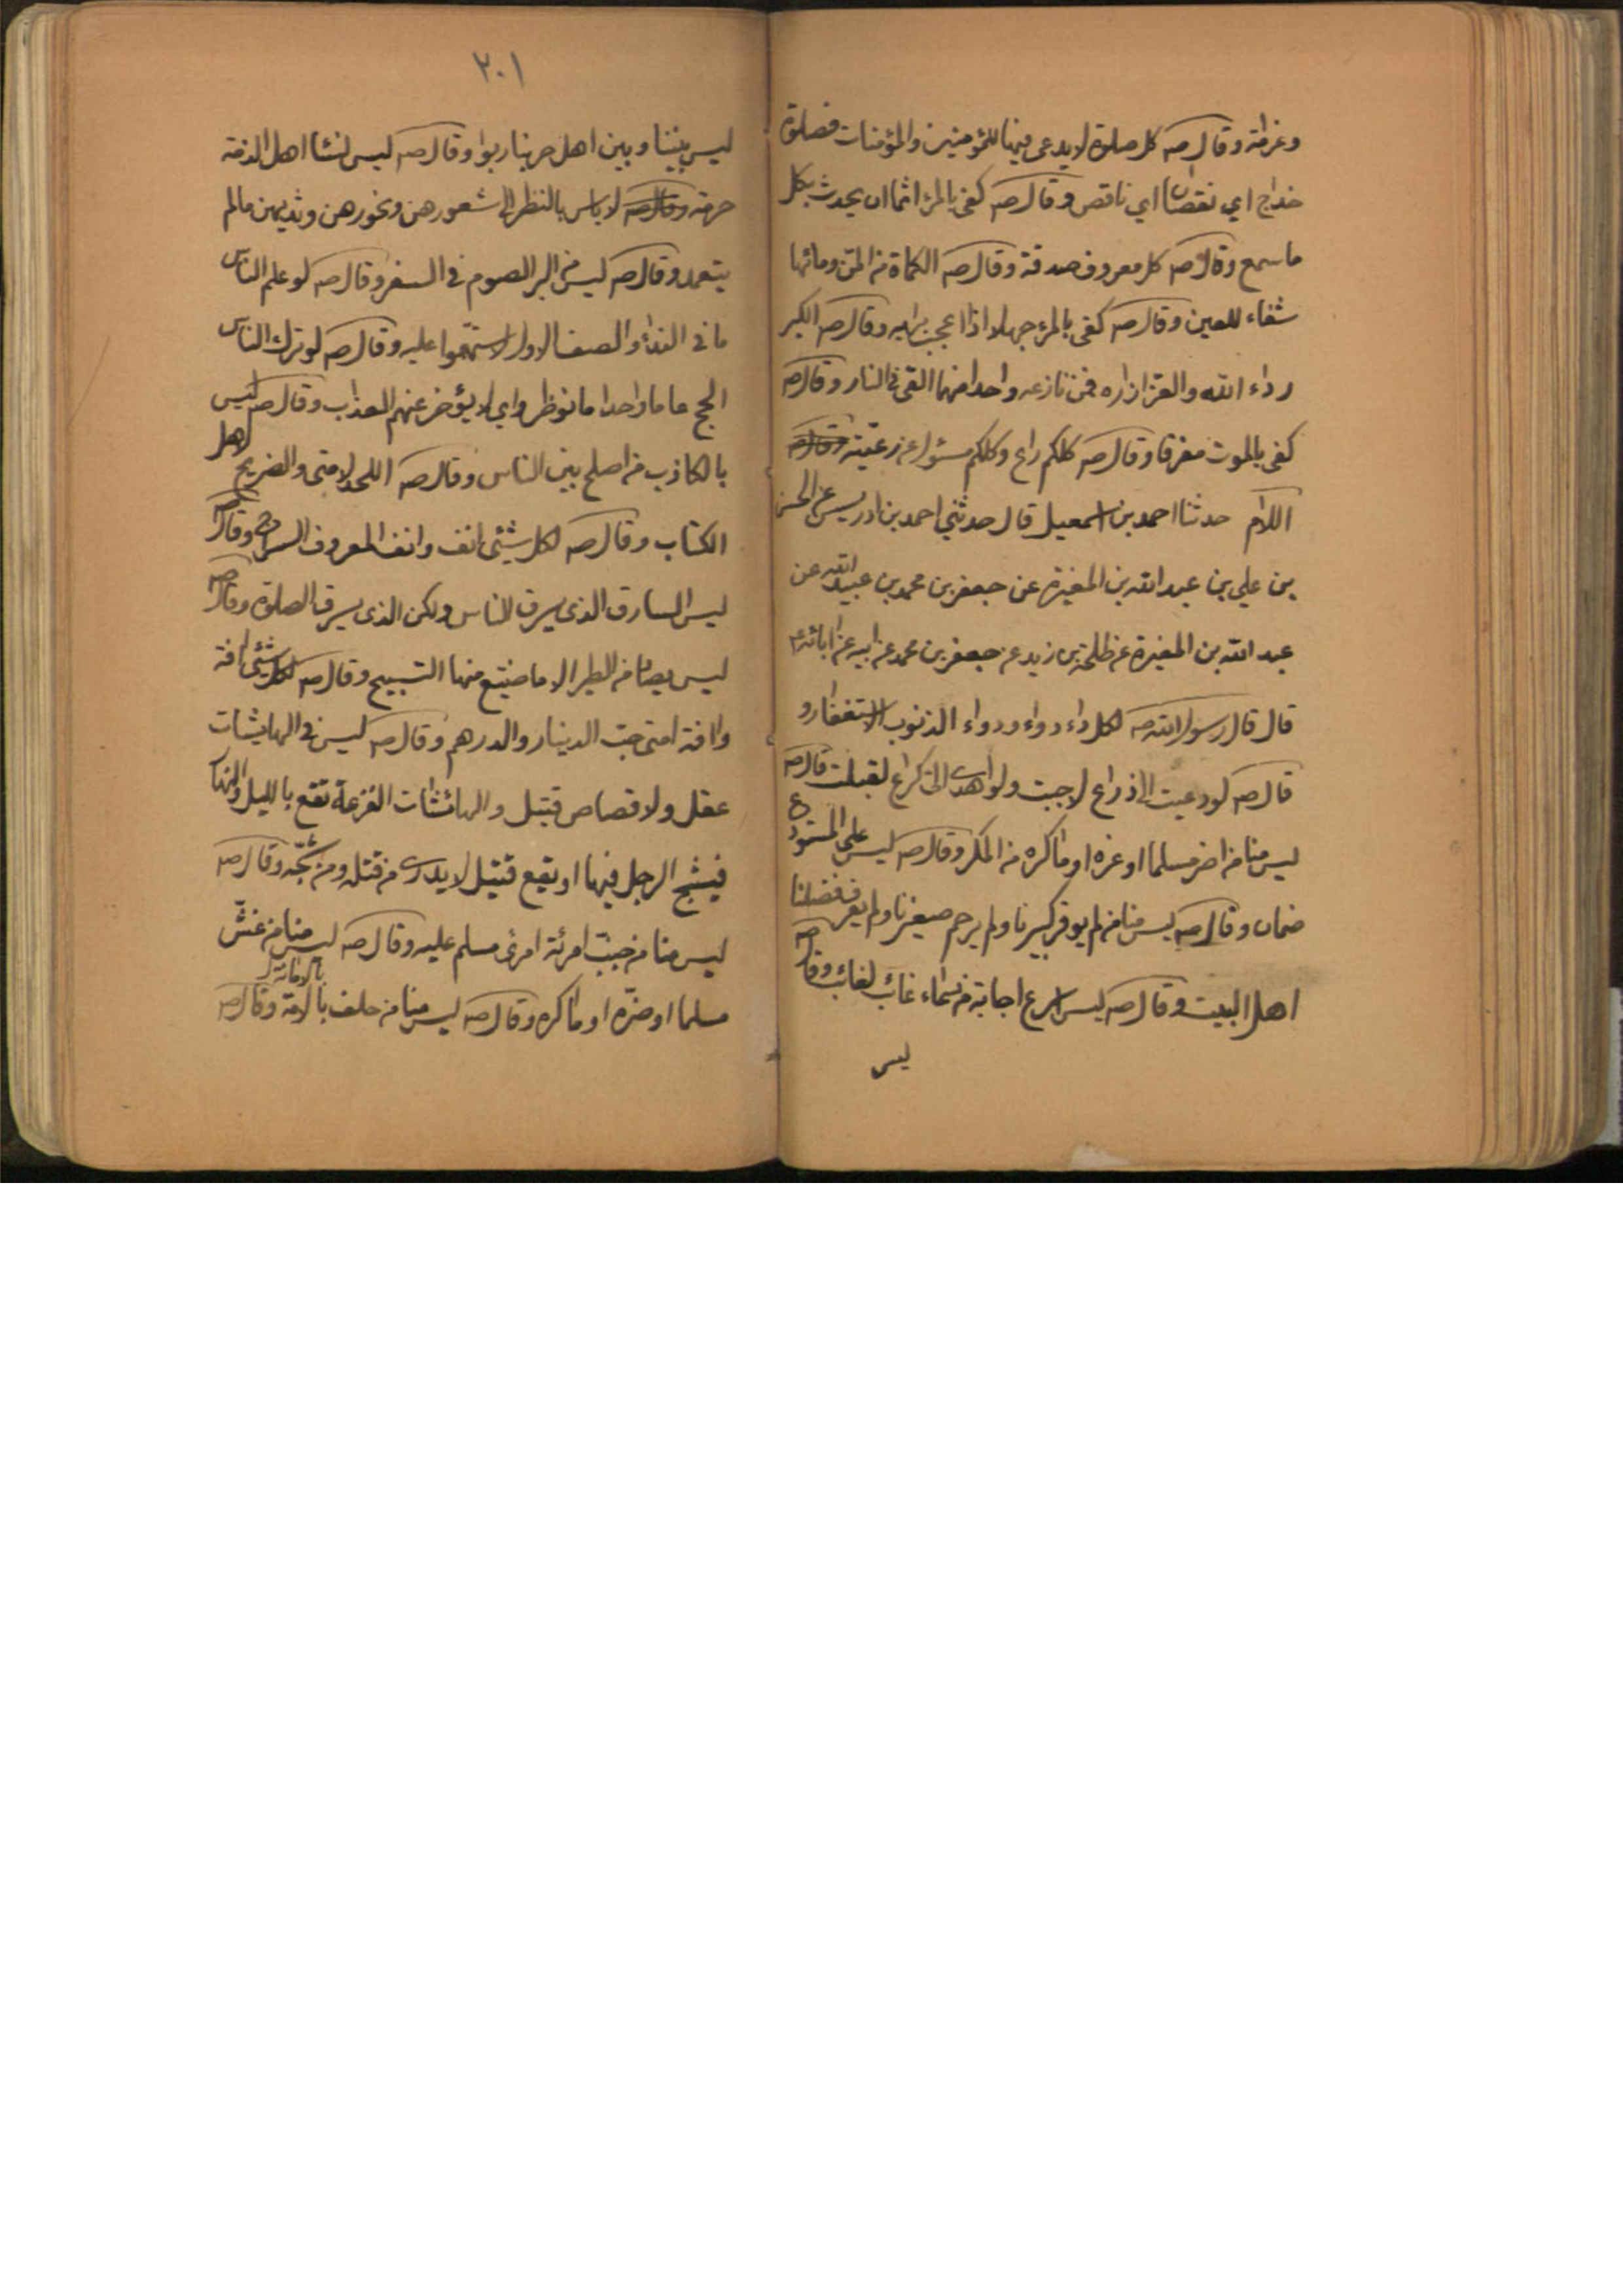 وغرمته وقال صه كل صلوة لا يدعى فيها للمؤمنين والمؤمنات فصلوة
خداج اي نقصان اي ناقص وقال صه كفى بالمرء اثما ان يحدث بكل
ما سمع وقال صه كل معروف صدقة وقال صه الكماة من المن ومائها
شفاء للعين وقال صه كفى بالمرء جهلا اذا اعجب برايه وقال صه الكبر
رداء الله والعز ازاره فمن نازعه واحدا منهما القى في النار وقال صه
كفى بالموت مفرقا وقال صه كلكم راع وكلكم مسئول عن رعيته وقال صه
اللام حدثنا احمد بن اسمعيل قال حدثني احمد بن ادريس عن الحسن
بن علي بن عبد الله بن المغيرة عن جعفر بن محمد بن عبيد الله عن
عبد الله بن المغيرة عن طلحة بن زيد عن جعفر بن محمد عن ابيه عن ابائه ع
قال قال رسول الله صه لكل داء دواء ودواء الذنوب الاستغفار و
قال صه لو دعيت الى ذراع لاجبت ولو اهدى الى كراع لقبلت قال صه
ليس منا من اضر مسلما او غره او ماكره من المكر وقال صه ليس على المستودع
ضمان وقال صه ليس منا من لم يوقر كبيرنا ولم يرحم صغيرنا ولم يعرف فضلنا
اهل البيت وقال صه ليس اسرع اجابة من دعاء غائب لغائب وقال صه
ليس
٢٠١
ليس بيننا وبين اهل حربنا ربوا وقال صه ليس لنساء اهل الذمة
حرمة وقال صه لا باس بالنظر الى شعورهن ونحورهن وثديهن ما لم
يتعمد وقال صه ليس من البر الصوم في السفر وقال صه لو علم الناس
ما في النداء والصف الاول لاستهموا عليه وقال صه لو ترك الناس
الحج عاما واحدا ما نوظروا اي لا يؤخر عنهم العذاب وقال صه ليس
بالكاذب من اصلح بين الناس وقال صه اللحد لامتى والضريح لاهل
الكتاب وقال صه لكل شئ انف وانف المعروف السراح وقال صه
ليس السارق الذى يسرق الناس ولكن الذى يسرق الصلوة وقال صه
ليس يصاد من الطير الا ما ضيع منها التسبيح وقال صه لكل شئ افة
وافة امتى حب الدينار والدرهم وقال صه ليس في الهايشات
عقل ولا قصاص قتيل والهائشات الفزعة تقع بالليل والنهار
فيشج الرجل فيها او تقع قتيل لا يدرى من قتله ومن شجه وقال صه
ليس منا من خبب امرئة امرئ مسلم عليه وقال صه ليس منا من غش
مسلما او ضره او ماكره وقال صه ليس منا من حلف بالامة بالامانة وقال صه